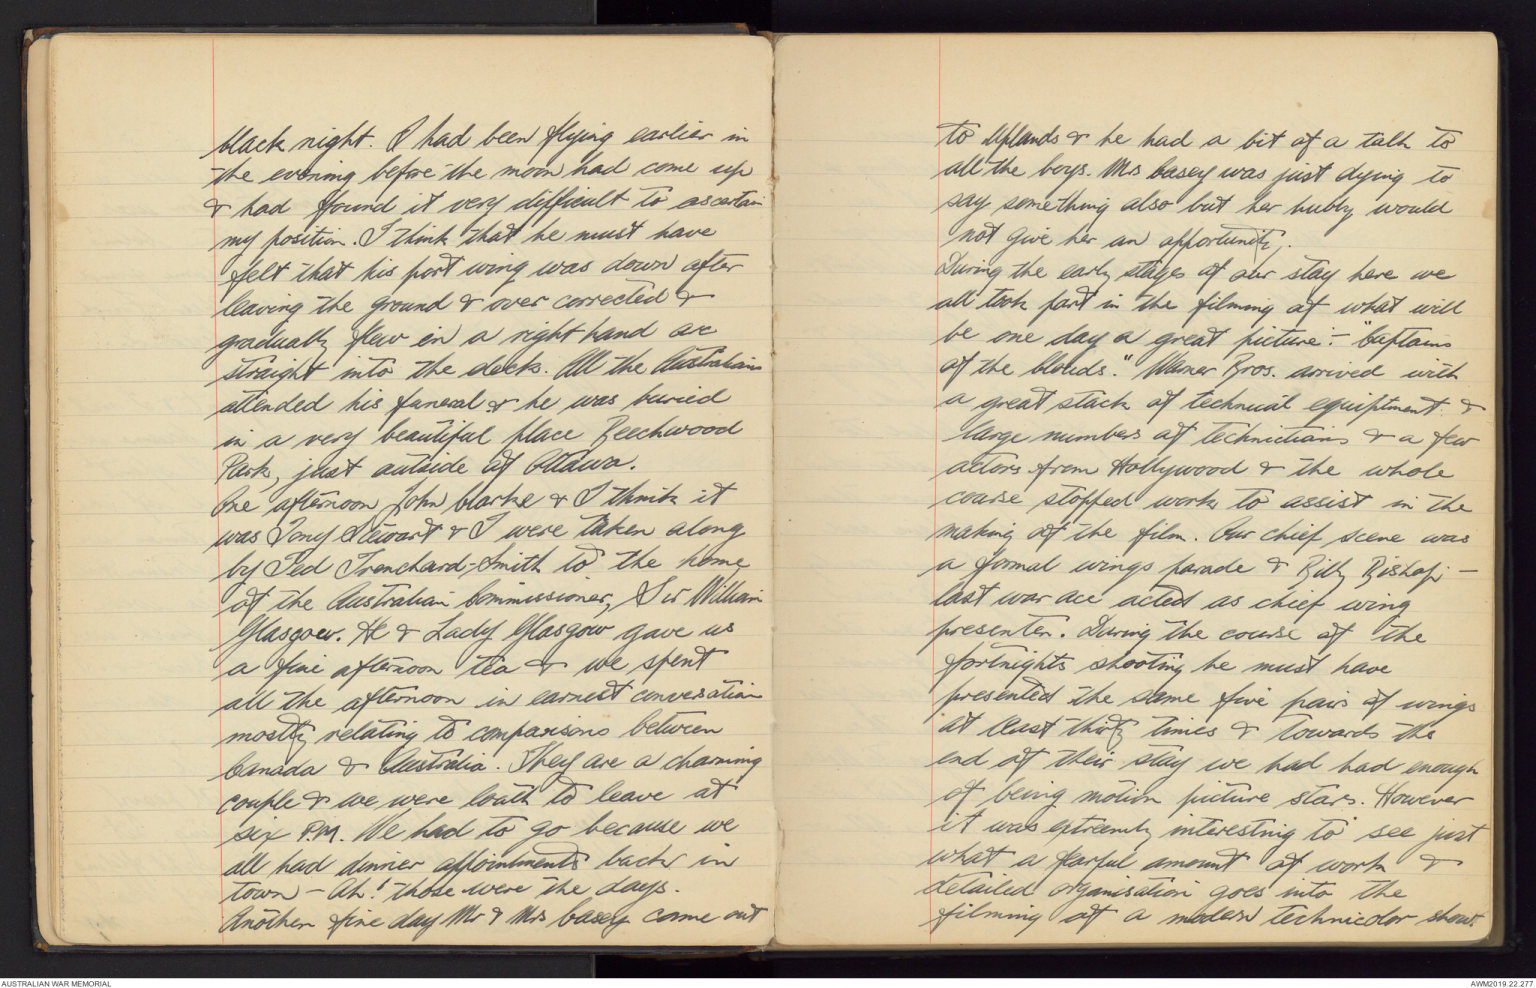 black night. I had been flying earlier in
the evening before the moon had come up
& had found it very difficult to ascertain
my position. I think that he must have
felt that his port wing was down after
leaving the ground & over corrected &
gradually flew in a right hand arc
straight into the deck. All the Australians
attended his funeral & he was buried
in a very beautiful place Beechwood
Park, just outside of Ottawa.
One afternoon John Clarke & I think it
was Tony Stewart & I were taken along
by Ted Trenchard-Smith to the home
of the Australian Commissioner, Sir William
Glasgow. He & Lady Glasgow gave us
a fine afternoon tea & we spent
all the afternoon in earnest conversation
mostly relating to comparisons between
Canada & Australia. They are a charming
couple & we were loath to leave at
six P.M. We had to go because we
all had dinner appointments back in
town – Ah! those were the days.
Another fine day Mr & Mrs Casey came out
to Uplands & he had a bit of a talk to
all the boys. Mrs Casey was just dying to
say something also but her hubby would
not give her an opportunity.
During the early stages of our stay here we
all took part in the filming of what will
be one day a great picture – "Captains
of the Clouds." Warner Bros. arrived with
a great stack of technical equiptment &
large numbers of technicians & a few
actors from Hollywood & the whole
course stopped work to assist in the
making of the film. Our chief scene was
a formal wings parade & Billy Bishop –
last war ace acted as chief wing
presenter. During the course of the
fortnights shooting he must have
presented the same five pairs of wings
at least thirty times & towards the
end of their stay we had had enough
of being motion picture stars. However
it was extremely interesting to see just
what a fearful amount of work &
detailed organisation goes into the
filming of a modern technicolor show.
AUSTRALIAN WAR MEMORIAL
AWM2019.22.277